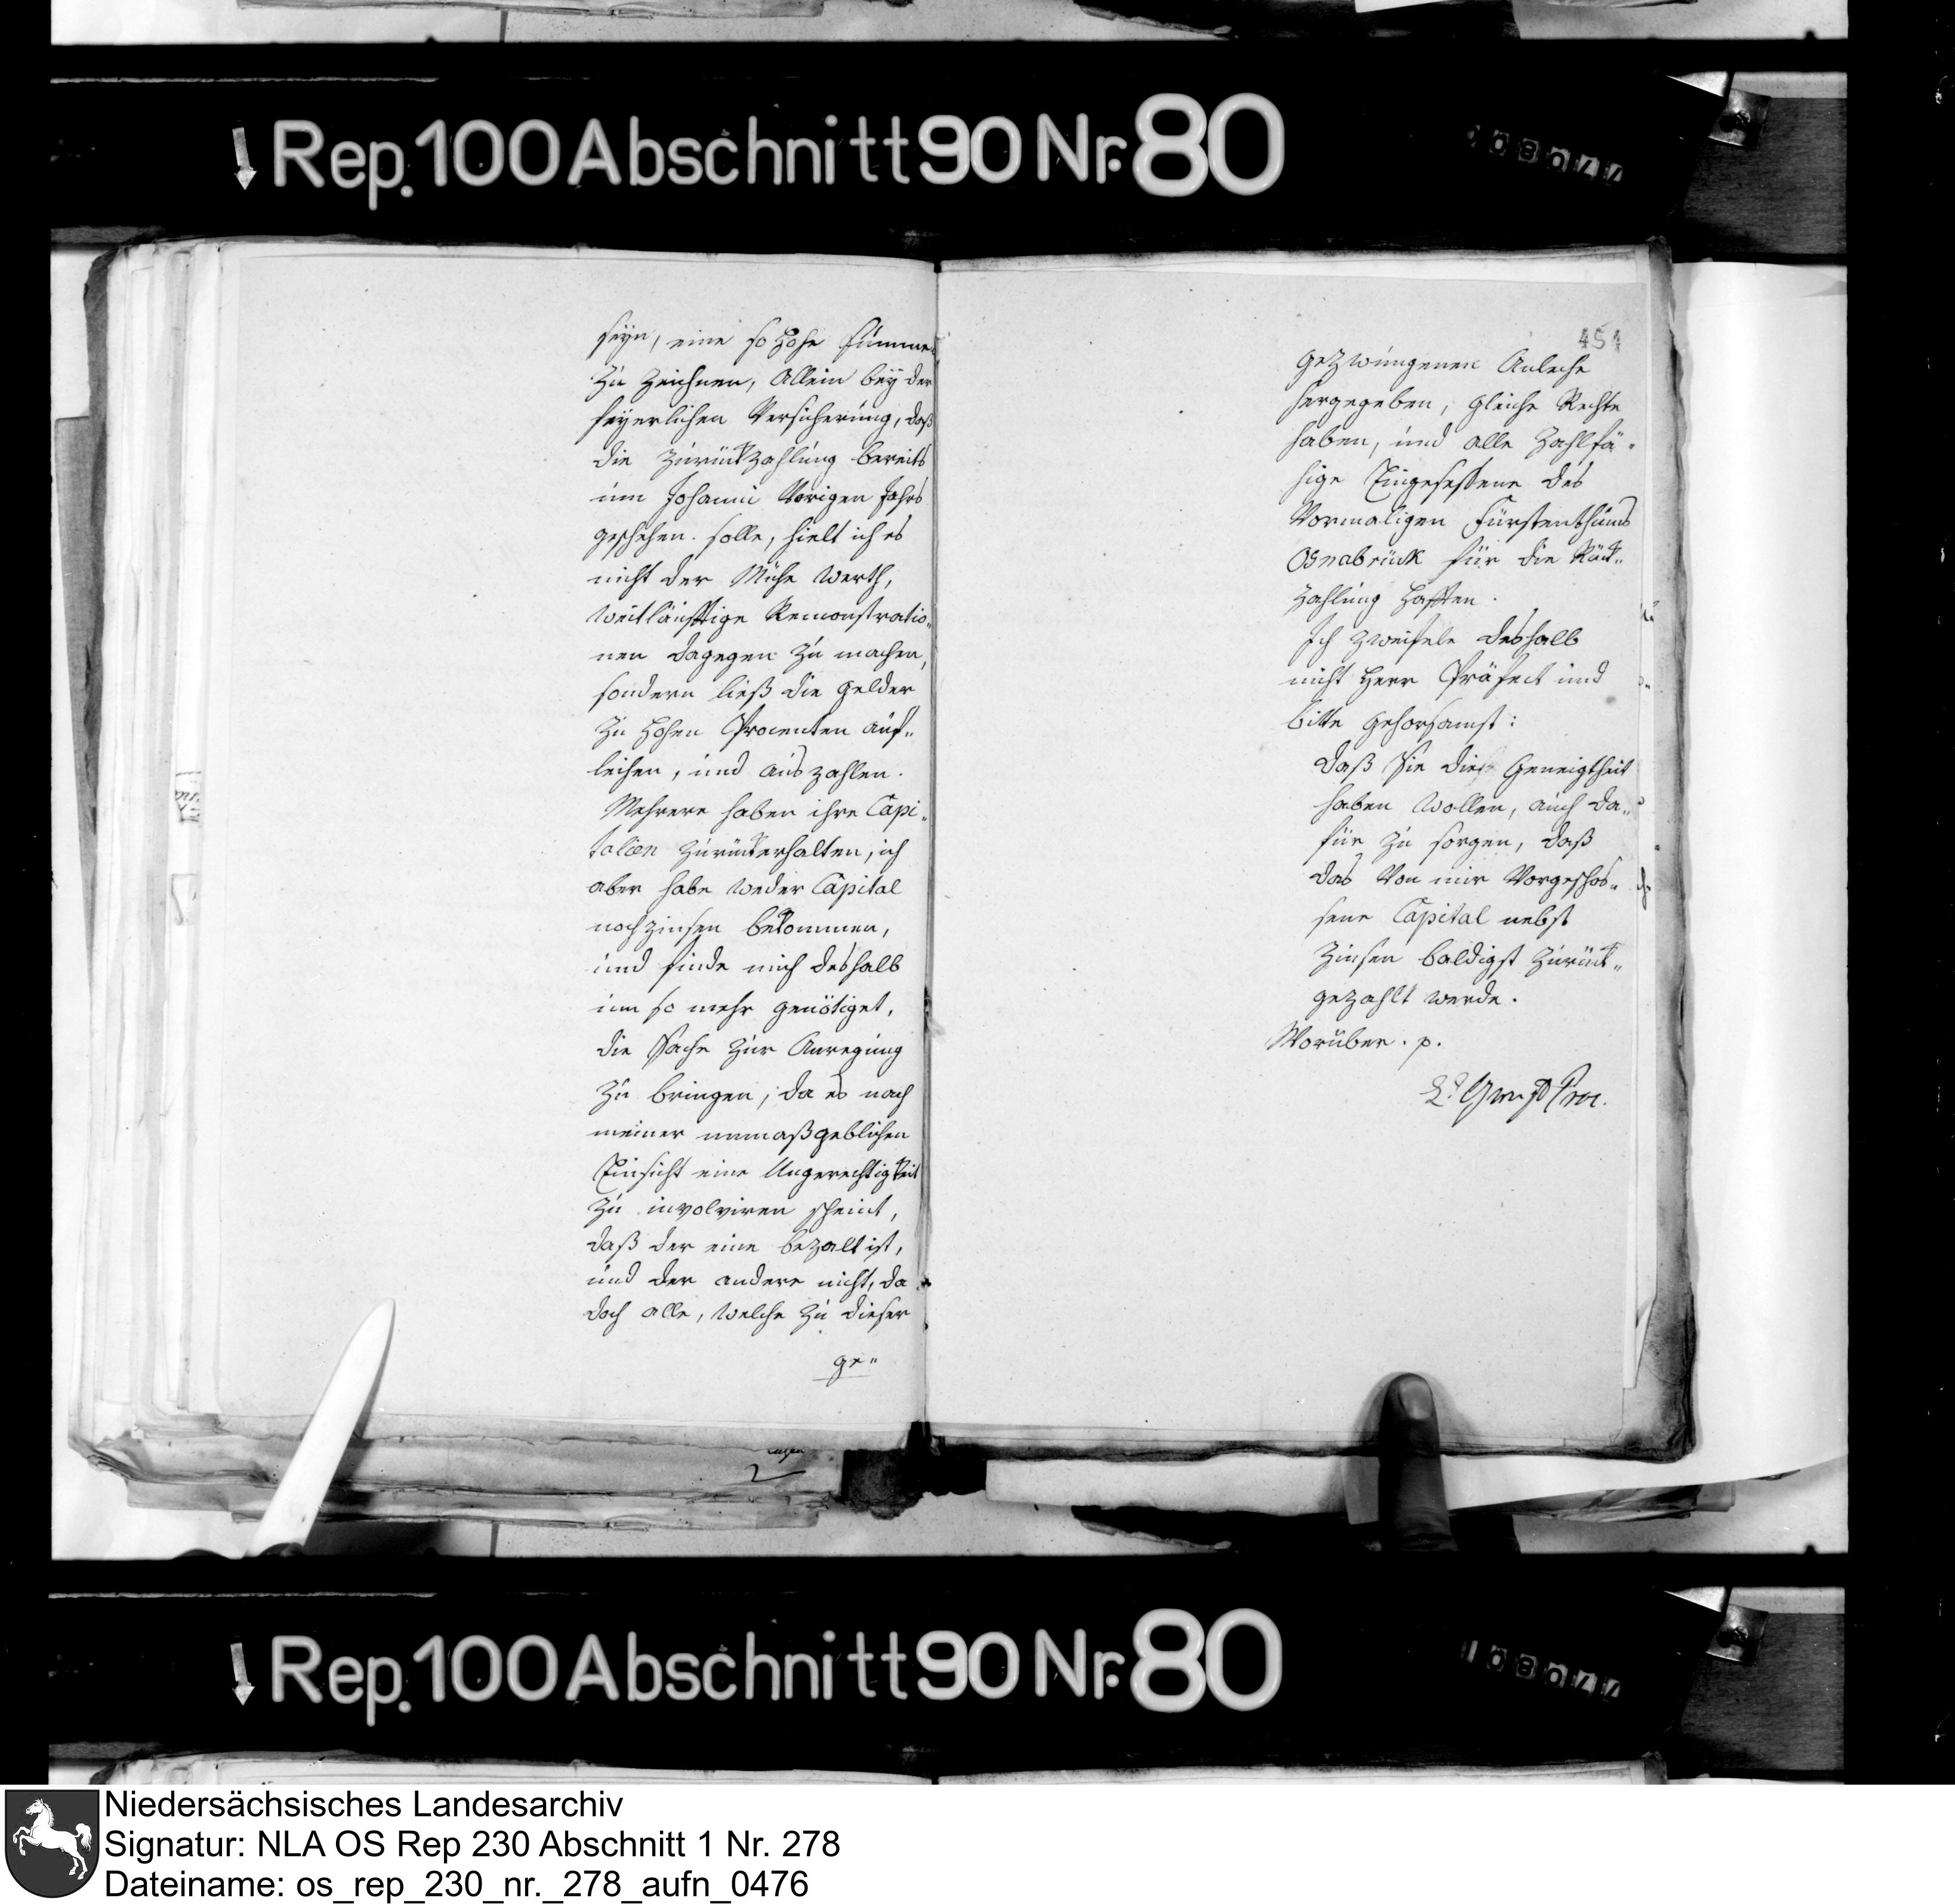 ↓ Rep. 100 Abschnitt 90 Nr. 80
seyn, eine so hohe Summe
zu zeichnen, Allein bey der
feyerlichen Versicherung, daß
die Zurückzahlung bereits
um Johanni vorigen Jahrs
geschehen solle, hielt ich es
nicht der Mühe werth,
weitläuftige Remonstratio„
nen dagegen zu machen,
sondern ließ die Gelder
zu hohen Procenten auf„
leihen, und auszahlen.
Mehrere haben ihre Capi„
talien zurückerhalten, ich
aber habe weder Capital
noch Zinsen bekommen,
und finde mich deshalb
um so mehr genötiget,
die Sache zur Anregung
zu bringen, da es nach
meiner unmaßgeblichen
Einsicht eine Ungerechtigkeit
zu involviren scheint,
daß der eine bezalt ist,
und der andere nicht, da
doch alle, welche zu dieser
ge„
454
gezwungenen Anleihe
hergegeben, gleiche Rechte
haben, und alle Zahlfä„
hige Eingesessene des
vormaligen Fürstenthums
Osnabrück für die Rück„
zahlung hafften.
Ich zweifele deshalb
nicht Herr Präfect und
bitte gehorsamst:
daß Sie die Geneigtheit
haben wollen, auch da„
für zu sorgen, daß
das von mir vorgeschos„
sene Capital nebst
Zinsen baldigst zurück„
gezahlt werde.
Worüber. p.
↓ Rep. 100 Abschnitt 90 Nr. 80
Niedersächsisches Landesarchiv
Signatur: NLA OS Rep 230 Abschnitt 1 Nr. 278
Dateiname: os_rep_230_nr._278_aufn_0476